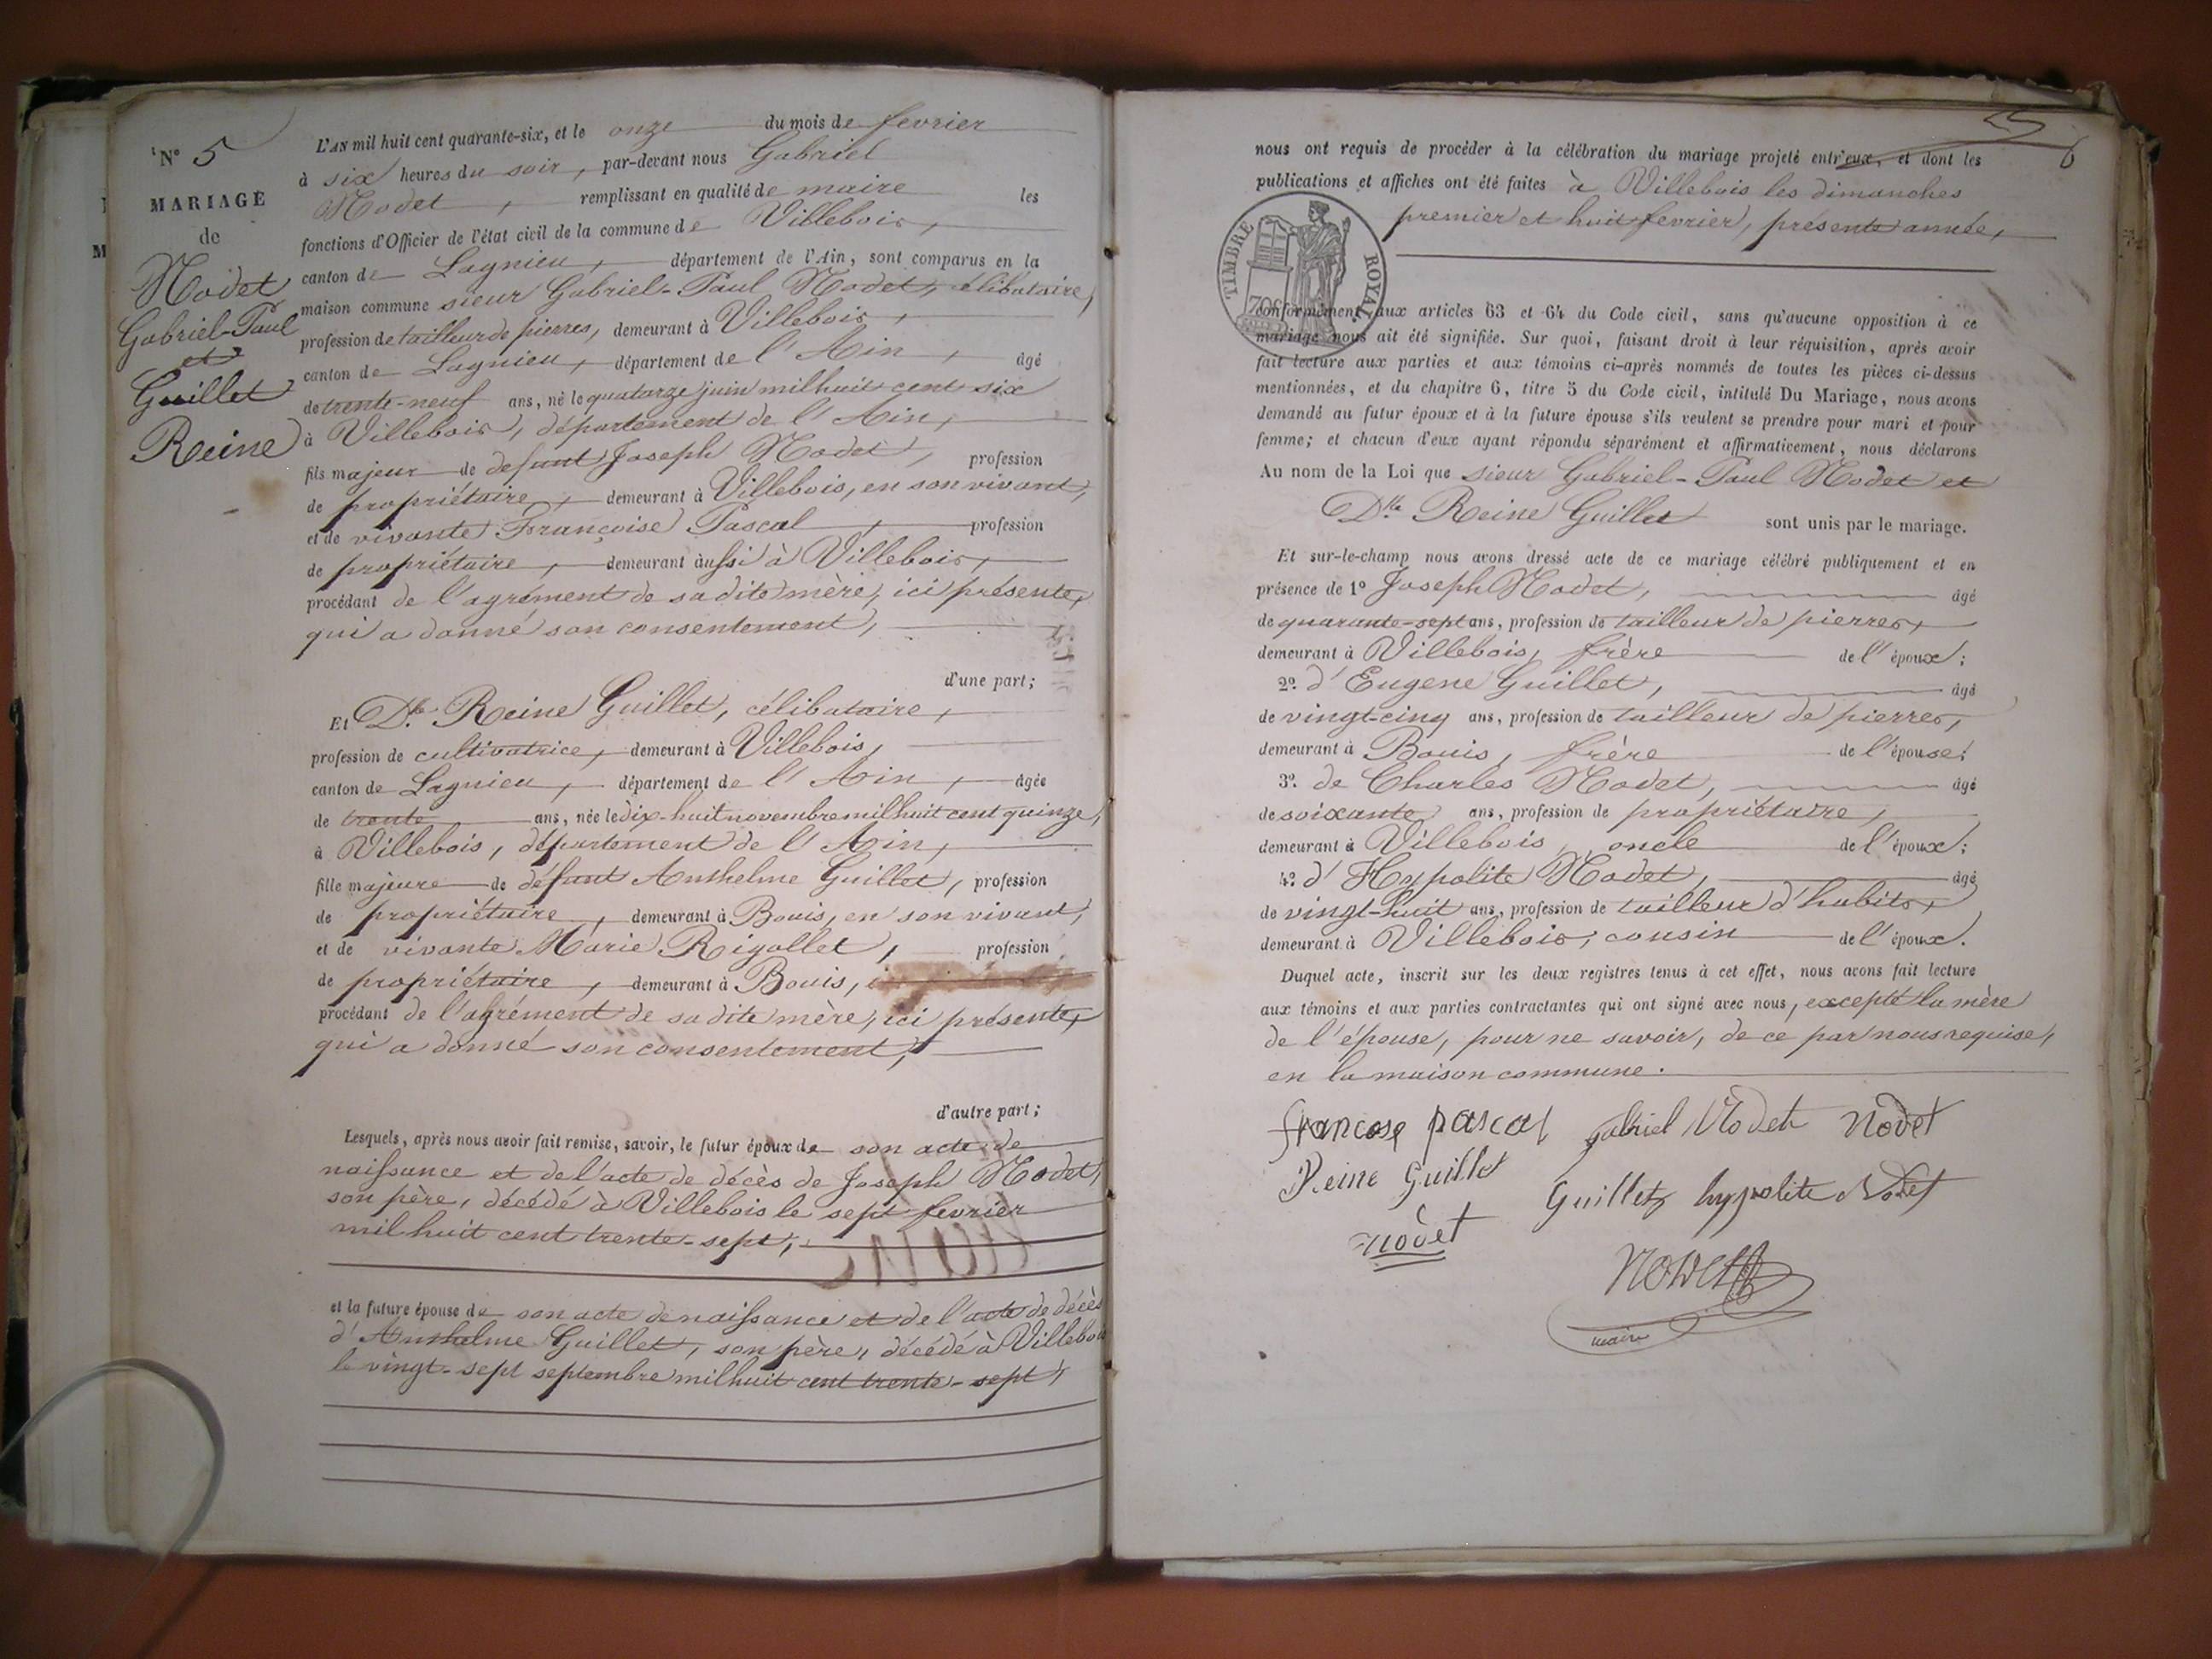 N° 5
MARIAGE
de
Nodet
Gabriel-Paul
et
Guillet
Reine
L'AN mil huit cent quarante-six, et le onze du mois de fevrier
à six heures du soir, par-devant nous Gabriel
Nodet, remplissant en qualité de maire les
fonctions d'Officier de l'état civil de la commune de Villebois,
canton de Lagnieu, département de l'Ain, sont comparus en la
maison commune sieur Gabriel-Paul Nodet, célibataire,
profession de tailleur de pierres, demeurant à Villebois,
canton de Lagnieu, département de l'Ain, âgé
de trente-neuf ans, né le quatorze juin mil huit cent six
à Villebois, département de l'Ain,
fils majeur de defunt Joseph Nodet, profession
de propriétaire, demeurant à Villebois, en son vivant,
et de vivante Françoise Pascal, profession
de propriétaire, demeurant aussi à Villebois,
procédant de l'agrément de sa dite mère, ici présente,
qui a donné son consentement,
d'une part;
Et Dlle Reine Guillet, célibataire,
profession de cultivatrice, demeurant à Villebois,
canton de Lagnieu, département de l'Ain, âgée
de trente ans, née le dix-huit novembre mil huit cent quinze,
à Villebois, département de l'Ain,
fille majeure de défunt Anthelme Guillet, profession
de propriétaire, demeurant à Bouis, en son vivant,
et de vivante Marie Rigollet, profession
de propriétaire, demeurant à Bouis,
procédant de l'agrément de sa dite mère, ici présente,
qui a donné son consentement,
d'autre part;
Lesquels, après nous avoir fait remise, savoir, le futur époux de son acte de
naissance et de l'acte de décès de Joseph Nodet,
son père, décédé à Villebois le sept fevrier
mil huit cent trente-sept,
et la future épouse de son acte de naissance et de l'acte de décès
d'Anthelme Guillet, son père, décédé à Villebois
le vingt-sept septembre mil huit cent trente-sept,
5
6
nous ont requis de procéder à la célébration du mariage projeté entr'eux, et dont les
publications et affiches ont été faites à Villebois les dimanches
premier et huit fevrier, présente année,
TIMBRE ROYAL
70c
conformément aux articles 63 et 64 du Code civil, sans qu'aucune opposition à ce
mariage nous ait été signifiée. Sur quoi, faisant droit à leur réquisition, après avoir
fait lecture aux parties et aux témoins ci-après nommés de toutes les pièces ci-dessus
mentionnées, et du chapitre 6, titre 5 du Code civil, intitulé Du Mariage, nous avons
demandé au futur époux et à la future épouse s'ils veulent se prendre pour mari et pour
femme; et chacun d'eux ayant répondu séparément et affirmativement, nous déclarons
Au nom de la Loi que sieur Gabriel-Paul Nodet et
Dlle Reine Guillet sont unis par le mariage.
Et sur-le-champ nous avons dressé acte de ce mariage célébré publiquement et en
présence de 1° Joseph Nodet, âgé
de quarante-sept ans, profession de tailleur de pierres,
demeurant à Villebois, frère de l'époux;
2° d'Eugene Guillet, âgé
de vingt-cinq ans, profession de tailleur de pierres,
demeurant à Bouis, frère de l'épouse;
3° de Charles Nodet, âgé
de soixante ans, profession de propriétaire,
demeurant à Villebois, oncle de l'époux;
4° d'Hypolite Nodet, âgé
de vingt-huit ans, profession de tailleur d'habits,
demeurant à Villebois, cousin de l'époux.
Duquel acte, inscrit sur les deux registres tenus à cet effet, nous avons fait lecture
aux témoins et aux parties contractantes qui ont signé avec nous, excepté la mère
de l'épouse, pour ne savoir, de ce par nous requise,
en la maison commune.
francose pascal gabriel Nodet Nodet
Reine Guillet Guillet hyppolite Nodet
nodet
Nodet
maire